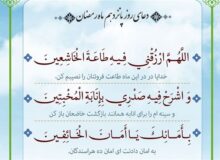 دعای روز پانزدهم ماه رمضان
اللَّهُمَّ ارْزُقْنِي فِيهِ طَاعَةَ الْخَاشِعِينَ
خدایا در در این ماه طاعت فروتنان را نصیبم کن.
وَ اشْرَحْ فِيهِ صَدْرِي بِإِنَابَةِ الْمُخْبِتِينَ
و سینه ام را برای انابه همانند بازگشت خاضعان باز کن
بِأَمَانِكَ يَا أَمَانَ الْخَائِفِينَ
به امان دادنت ای امان ده هراسندگان.